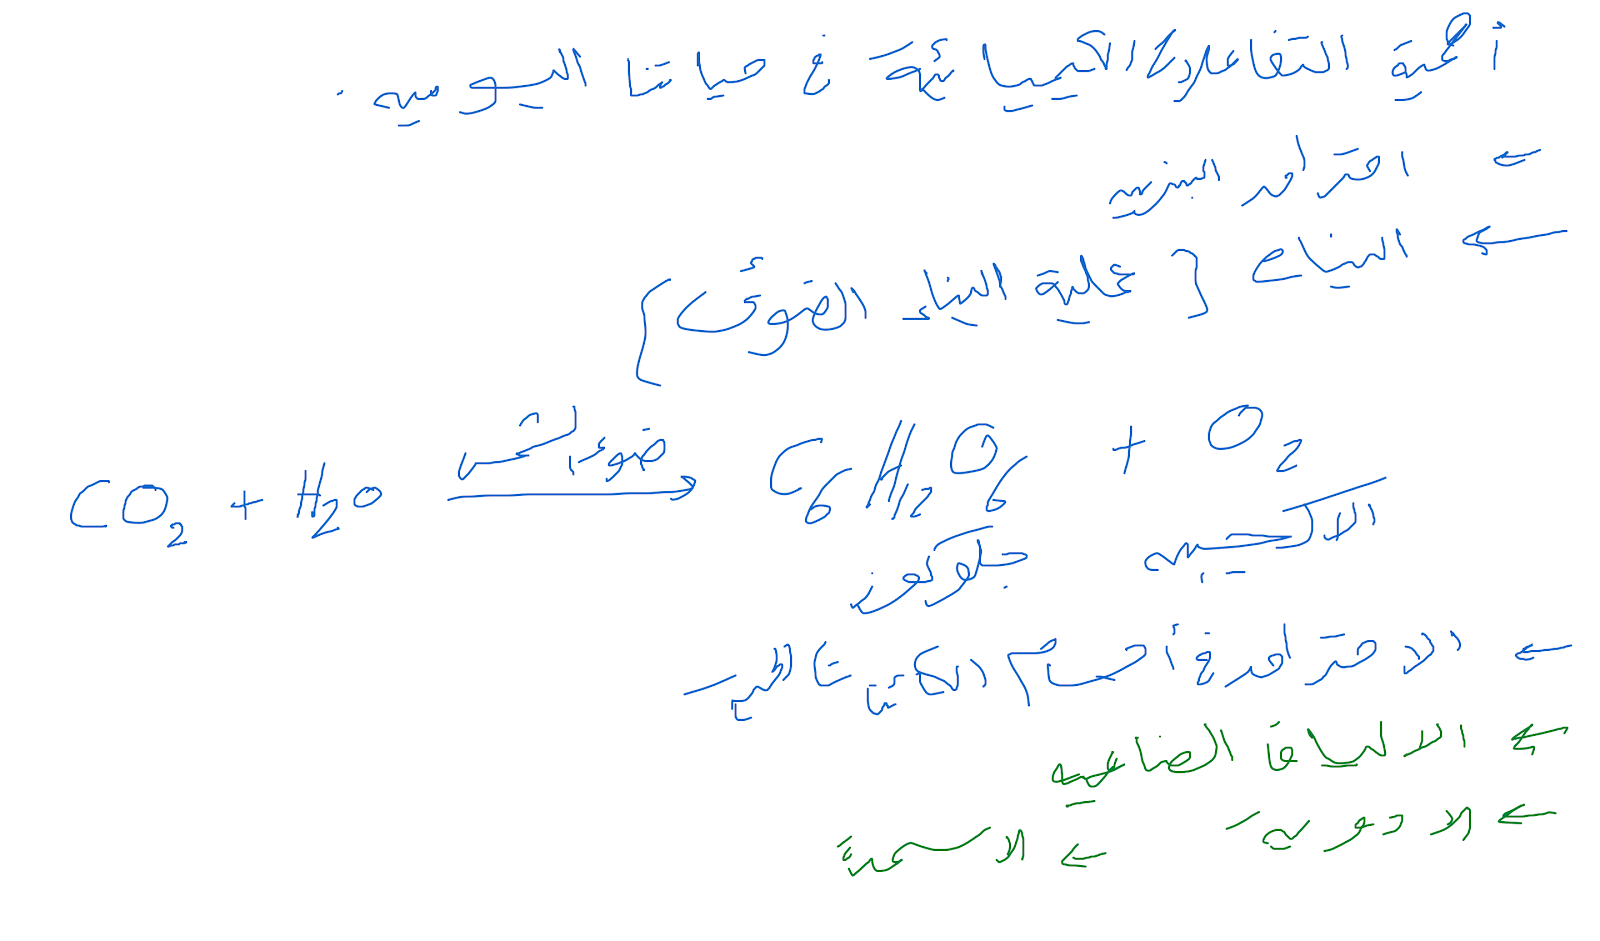 أهمية التفاعلات الكيميائية في حياتنا اليومية.
← احتراق البنزين
← النبات [عملية البناء الضوئى]
CO2 + H2O ضوء الشمس → C6H12O6 + O2
جلوكوز الاكجين
← الاحتراق في أجسام الكائنات الحية
← الالياف الصناعيه
← الادوية ← الاسمدة